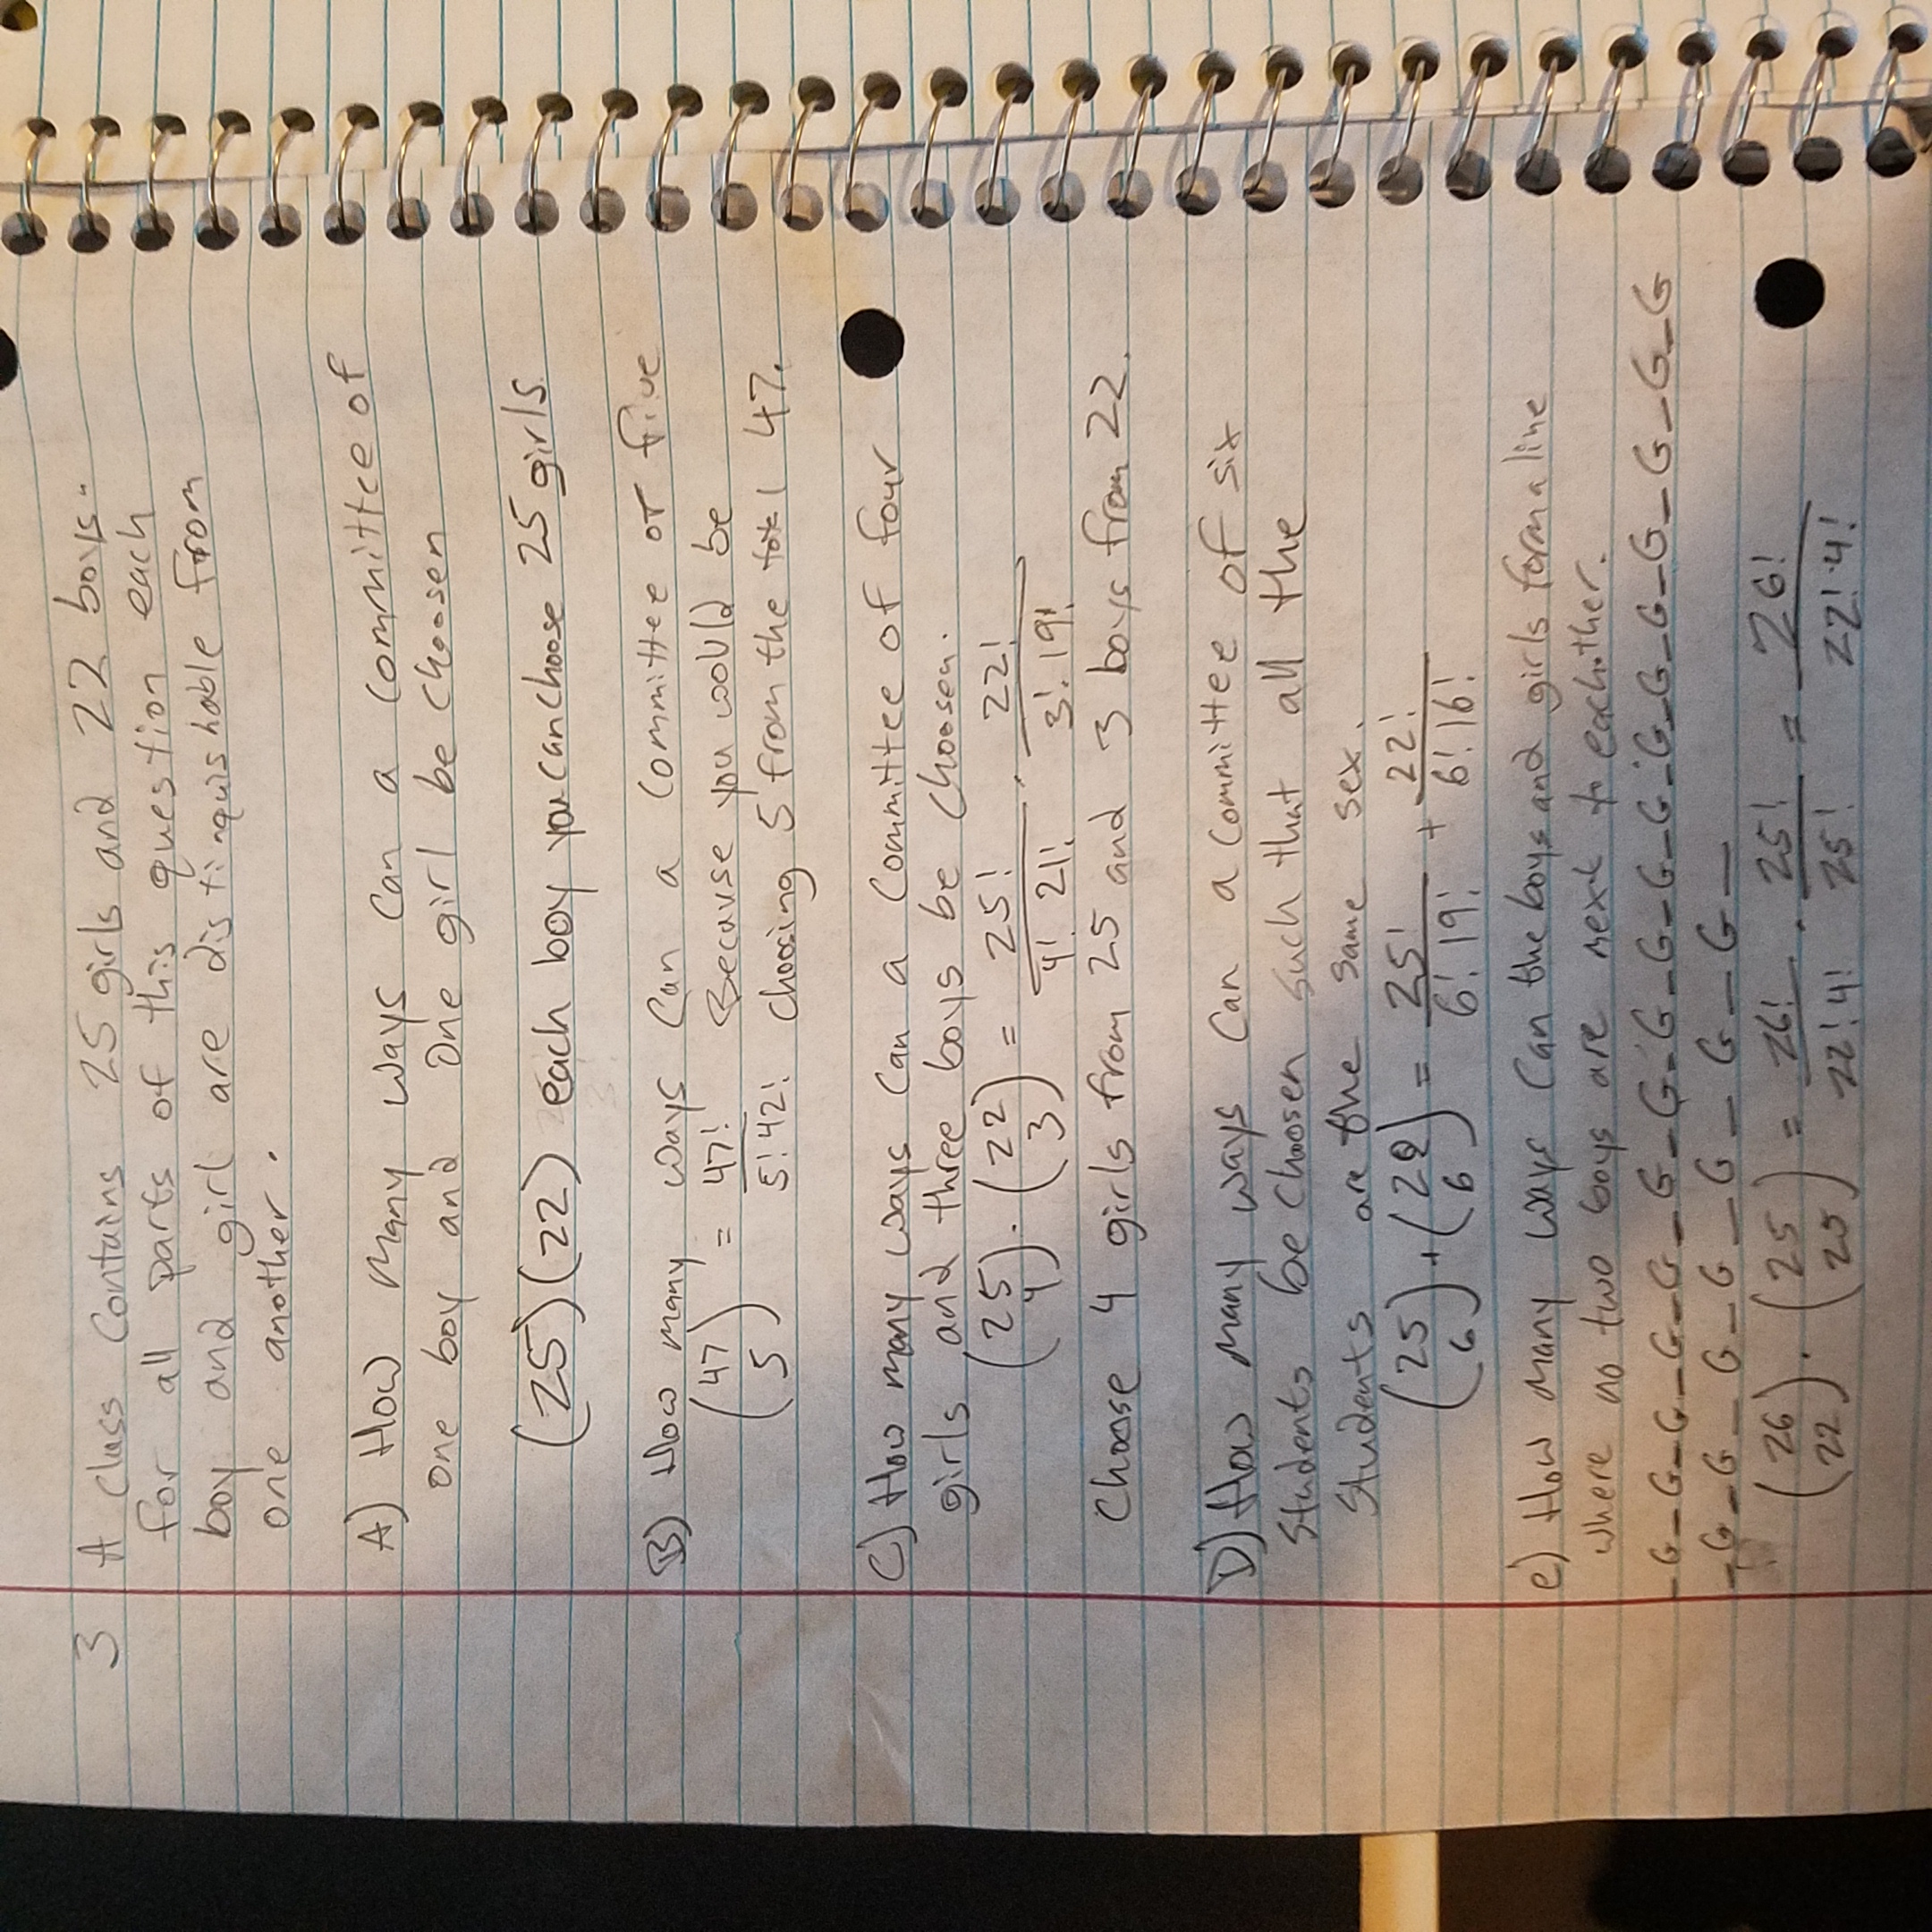 3 A class Contains 25 girls and 22 boys.
for all parts of this question each
boy and girl are distinquishable from
one another.
A) How Many ways Can a Committee of
one boy and One girl be Choosen
(25)(22) each boy you can choose 25 girls.
B) How many ways Can a Committee of five
(47 5) = 47!/5!42! Because you would be
Choosing 5 from the total 47.
C) How many ways Can a Committee of four
girls and three boys be Choosen.
(25 4) · (22 3) = 25!/4! 21! · 22!/3! 19!
Choose 4 girls from 25 and 3 boys from 22.
D) How Many ways Can a Committee of six
Students be Choosen Such that all the
Students are the Same sex.
(25 6) + (22 6) = 25!/6! 19! + 22!/6! 16!
e) How Many Ways Can the boys and girls form a line
where no two boys are next to eachother.
_G_G_G_G_G_G_G_G_G_G_G_G_G_G_G_G_G_G
_G_G_G_G_G_G_G_
(26 22) · (25 25) = 26!/22! 4! · 25!/25! = 26!/22!·4!